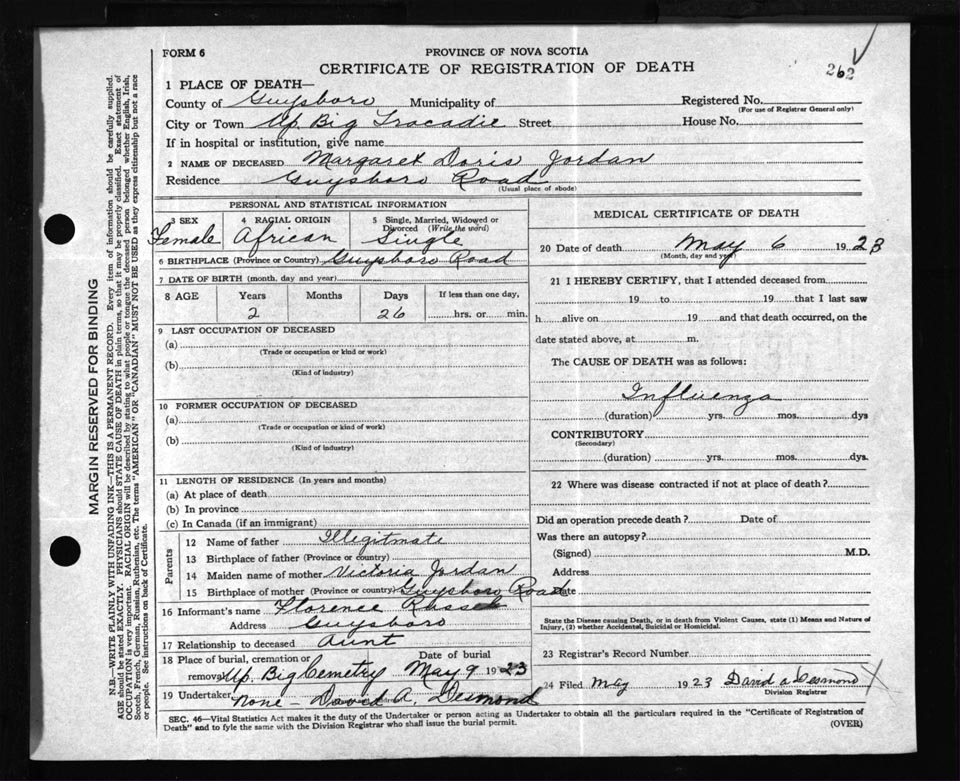 FORM 6
PROVINCE OF NOVA SCOTIA
CERTIFICATE OF REGISTRATION OF DEATH
262
1 PLACE OF DEATH—
County of Guysboro Municipality of Registered No.
(For use of Registrar General only)
City or Town Up. Big Tracadie Street House No.
If in hospital or institution, give name
2 NAME OF DECEASED Margaret Doris Jordan
Residence Guysboro Road
(Usual place of abode)
PERSONAL AND STATISTICAL INFORMATION
3 SEX 4 RACIAL ORIGIN 5 Single, Married, Widowed or Divorced (Write the word)
Female African Single
6 BIRTHPLACE (Province or Country) Guysboro Road
7 DATE OF BIRTH (month, day and year)
8 AGE Years Months Days If less than one day,
2 26 hrs. or min.
9 LAST OCCUPATION OF DECEASED
(a)
(Trade or occupation or kind or work)
(b)
(Kind of industry)
10 FORMER OCCUPATION OF DECEASED
(a)
(Trade or occupation or kind of work)
(b)
(Kind of industry)
11 LENGTH OF RESIDENCE (In years and months)
(a) At place of death
(b) In province
(c) In Canada (if an immigrant)
Parents
12 Name of father Illegitmate
13 Birthplace of father (Province or country)
14 Maiden name of mother Victoria Jordan
15 Birthplace of mother (Province or country) Guysboro Road
16 Informant's name Florence
Address Guysboro
17 Relationship to deceased Aunt
18 Place of burial, cremation or removal Up. Big Cemetry Date of burial May 9 1923
19 Undertaker None - David A. Desmond
MEDICAL CERTIFICATE OF DEATH
20 Date of death May 6 1923
(Month, day and year)
21 I HEREBY CERTIFY, that I attended deceased from
19 to 19 that I last saw
h alive on 19 and that death occurred, on the
date stated above, at m.
The CAUSE OF DEATH was as follows:
Influenza
(duration) yrs. mos. dys
CONTRIBUTORY
(Secondary)
(duration) yrs. mos. dys.
22 Where was disease contracted if not at place of death?
Did an operation precede death? Date of
Was there an autopsy?
(Signed) M.D.
Address
Date
State the Disease causing Death, or in death from Violent Causes, state (1) Means and Nature of
Injury, (2) whether Accidental, Suicidal or Homicidal.
23 Registrar's Record Number
24 Filed May 1923 David A Desmond
Division Registrar
SEC. 46—Vital Statistics Act makes it the duty of the Undertaker or person acting as Undertaker to obtain all the particulars required in the "Certificate of Registration of
Death" and to fyle the same with the Division Registrar who shall issue the burial permit.
(OVER)
MARGIN RESERVED FOR BINDING
N.B.—WRITE PLAINLY WITH UNFADING INK—THIS IS A PERMANENT RECORD. Every item of information should be carefully supplied.
AGE should be stated EXACTLY. PHYSICIANS should STATE CAUSE OF DEATH in plain terms, so that it may be properly classified. Exact statement of
OCCUPATION is very important. RACIAL ORIGIN will be described by stating to what people or tongue the deceased person belonged whether English, Irish,
Scotch, French, German, Russian, Ruthenian, etc. The terms "AMERICAN" OR "CANADIAN" MUST NOT BE USED as they express citizenship but not a race
or people. See instructions on back of Certificate.